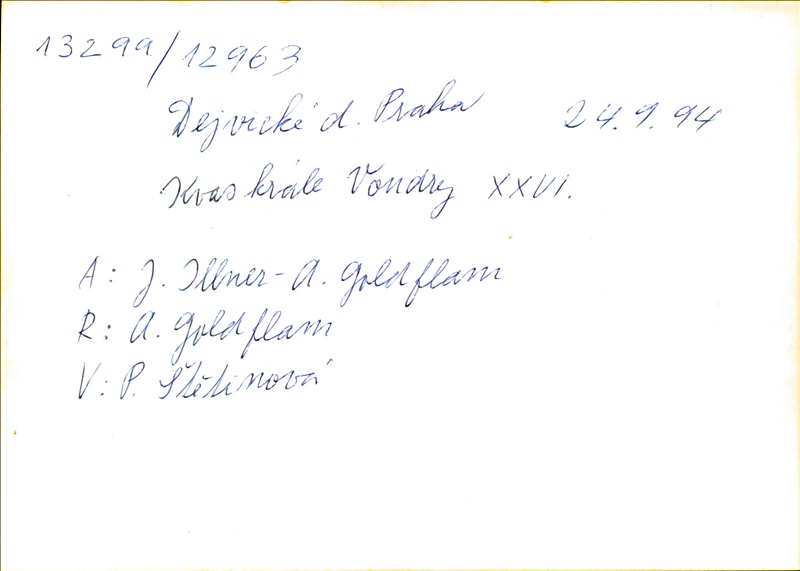 13299/12963
Dejvické d. Praha 24.9.94
Kvas krále Vondry XXVI.
A: J. Illner - A. Goldflam
R: A. Goldflam
V: P. Štětinová